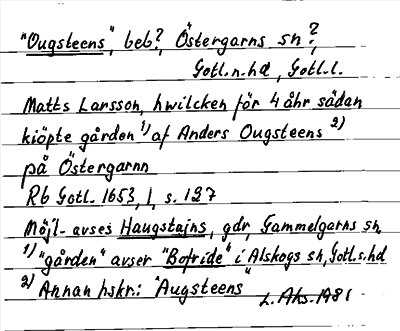 "Ougsteens", beb?, Östergarns sn?,
Gotl.n.hd, Gotl.l.
Matts Larsson, hwilcken för 4 åhr sädan
kiöpte gården 1) af Anders Ougsteens 2)
på Östergarnn
Rb Gotl. 1653, 1, s. 127
Möjl. avses Haugstajns, gdr, Gammelgarns sn.
1) "gården" avser "Bofride" i Alskogs sn, Gotl.s.hd
2) Annan hskr: "Augsteens"
L. Ahs. 1981